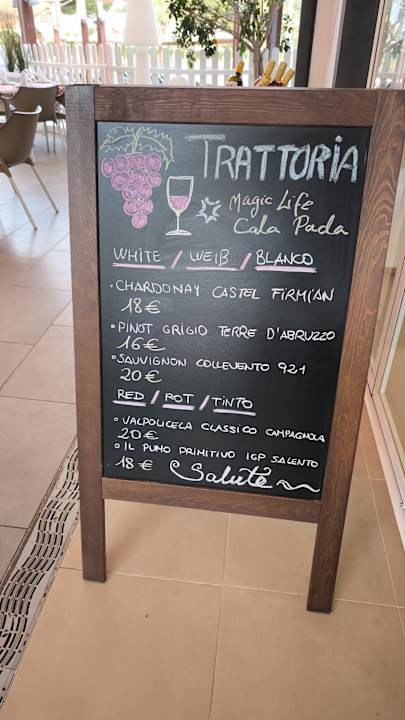 TRATTORIA
Magic Life
Cala Pada
WHITE / WEIß / BLANCO
• CHARDONAY CASTEL FIRMIAN
18 €
• PINOT GRIGIO TERRE D'ABRUZZO
16 €
• SAUVIGNON COLLEVENTO 921
20 €
RED / ROT / TINTO
• VALPOLICELA CLASSICO CAMPAGNOLA
20 €
• IL PUMO PRIMITIVO IGP SALENTO
18 €
Saluté